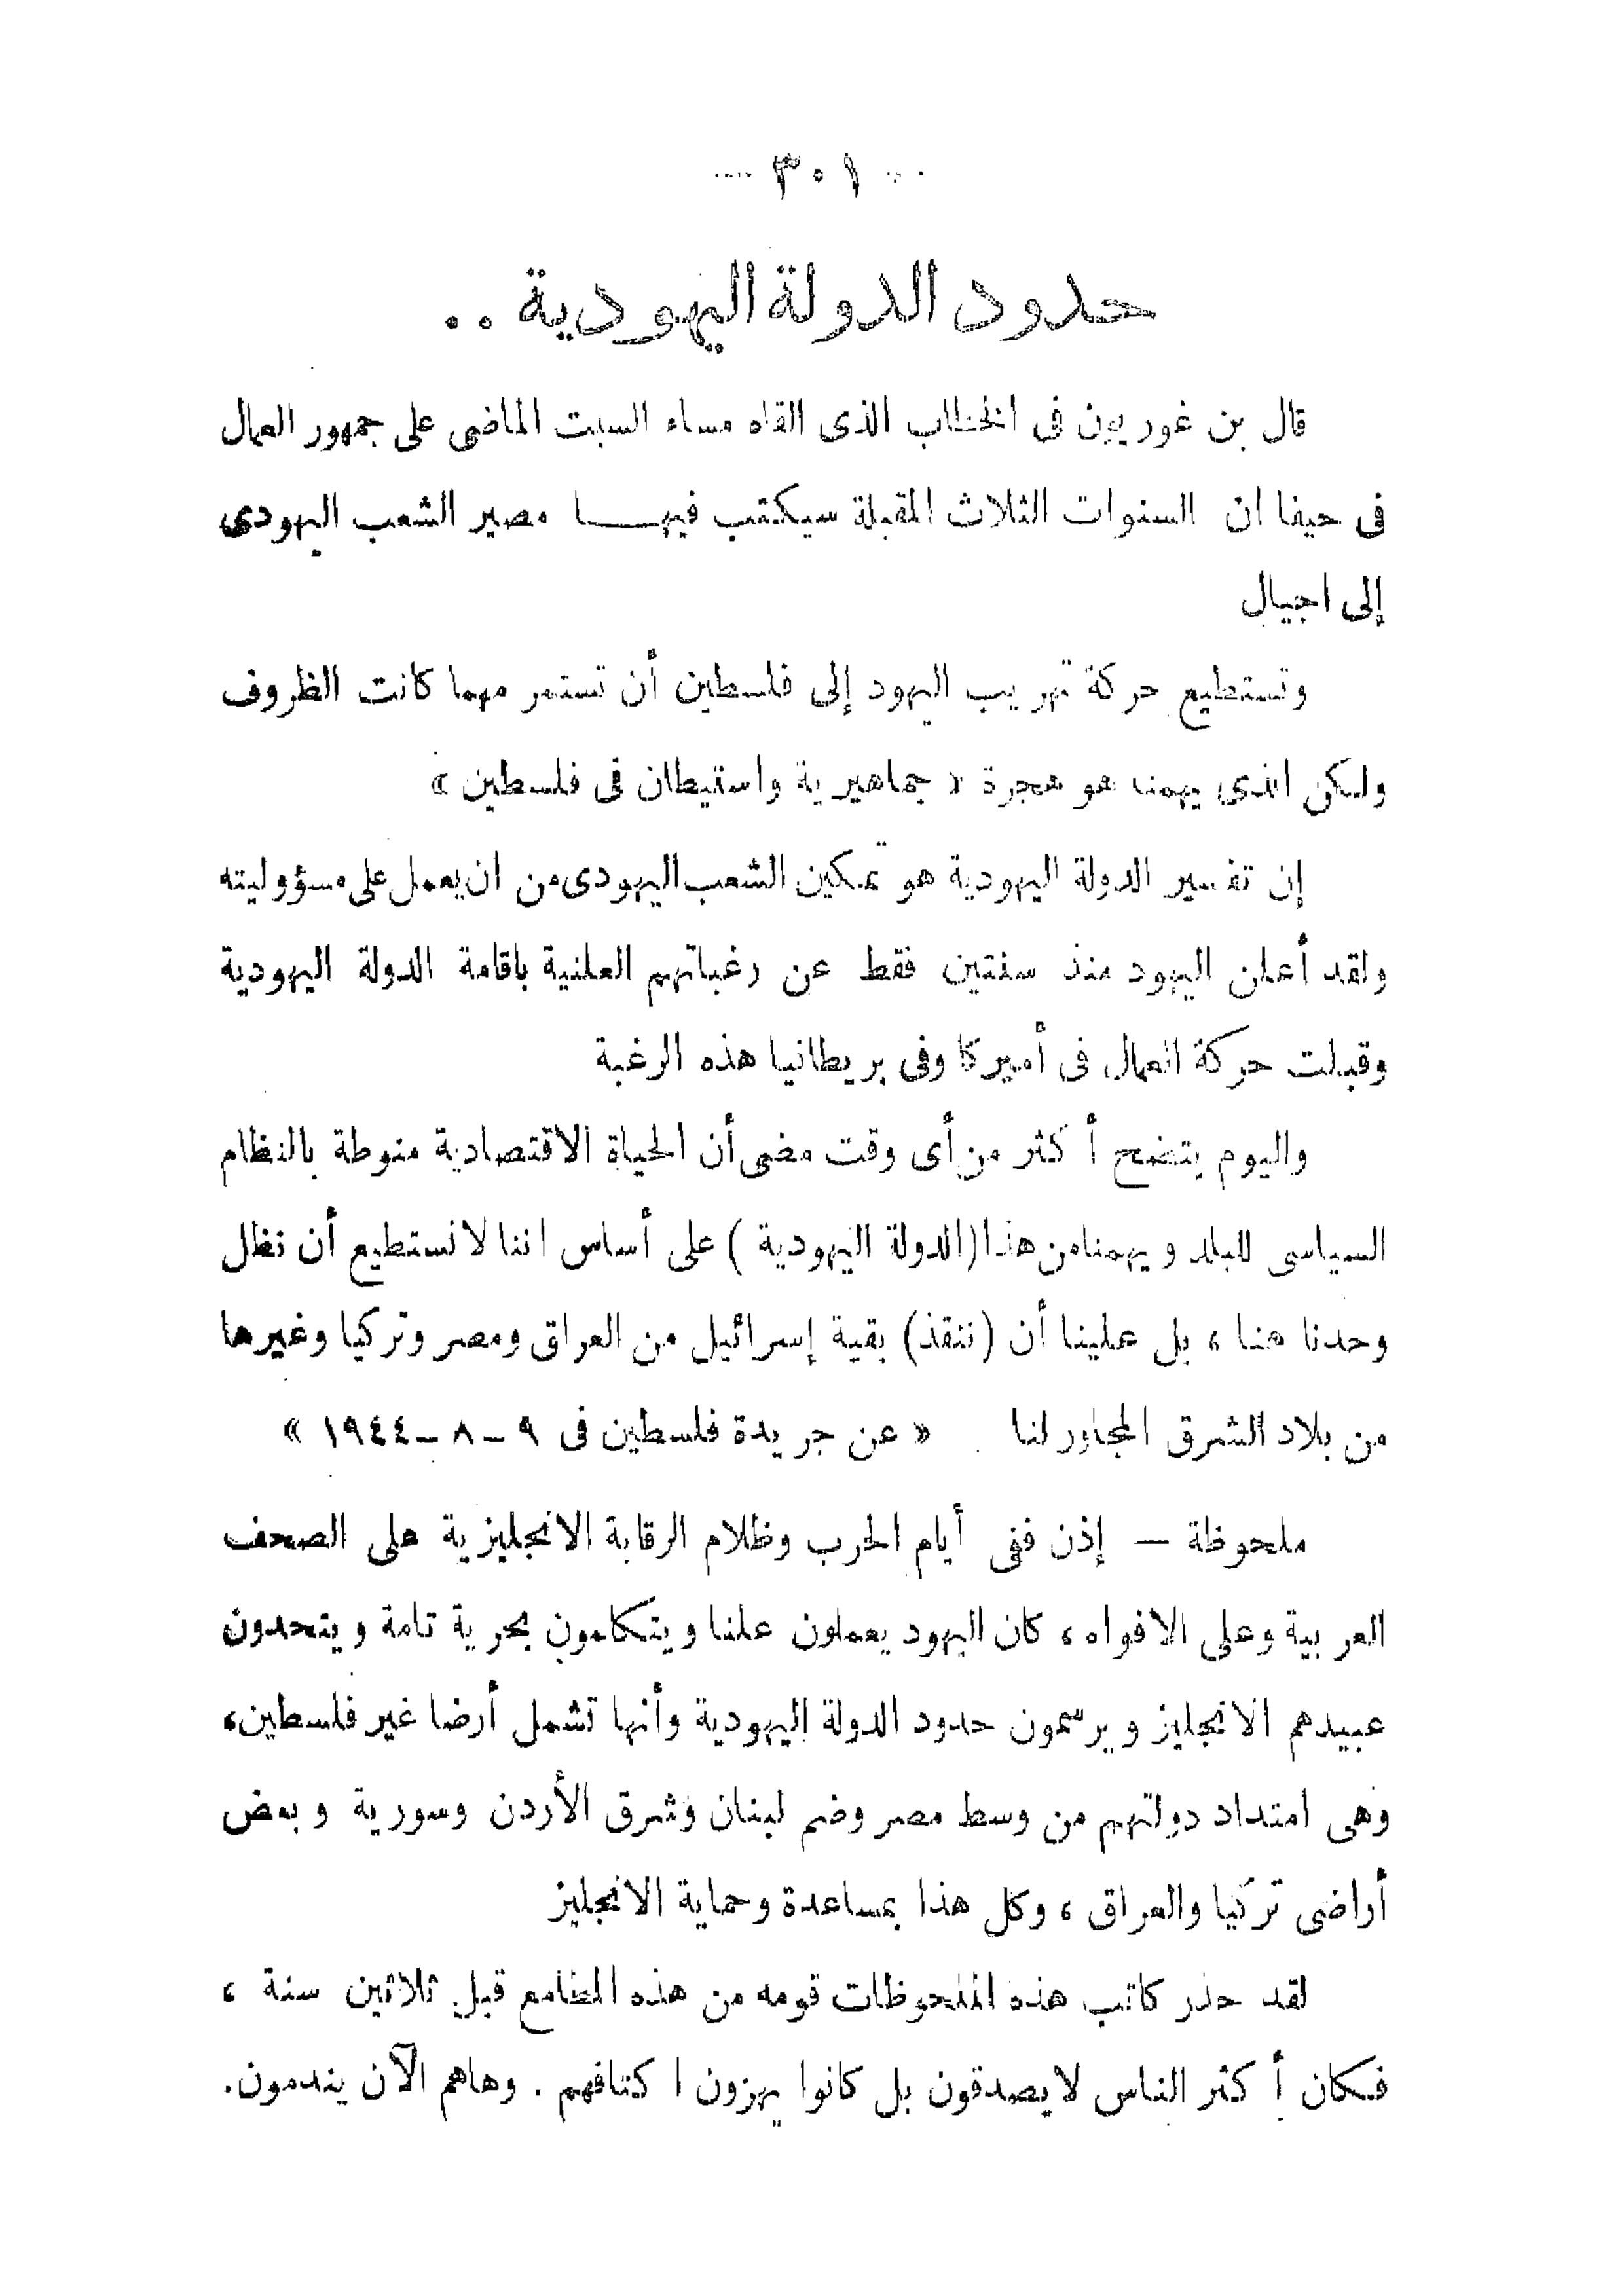 ٣٠١
حدود الدولة اليهودية ..
قال بن غوريون فى الخطاب الذى القاه مساء السبت الماضى على جمهور العمال
فى حيفا ان السنوات الثلاث المقبلة سيكتب فيهـــا مصير الشعب اليهودى
إلى اجيال
وتستطيع حركة تهريب اليهود إلى فلسطين أن تستمر مهما كانت الظروف
ولكن الذى يهمنا هو هجرة « جماهيرية واستيطان فى فلسطين »
إن تفسير الدولة اليهودية هو تمكين الشعب اليهودى من ان يعمل على مسؤوليته
ولقد أعلن اليهود منذ سنتين فقط عن رغباتهم العلنية باقامة الدولة اليهودية
وقبلت حركة العمال فى أميركا وفى بريطانيا هذه الرغبة
واليوم يتضح أكثر من أى وقت مضى أن الحياة الاقتصادية منوطة بالنظام
السياسى للبلد ويهمنا من هذا (الدولة اليهودية ) على أساس اننا لا نستطيع أن نظل
وحدنا هنا ، بل علينا أن (ننقذ) بقية إسرائيل من العراق ومصر وتركيا وغيرها
من بلاد الشرق المجاور لنا « عن جريدة فلسطين فى ٩ – ٨ – ١٩٤٤ »
ملحوظة — إذن ففى أيام الحرب وظلام الرقابة الانجليزية على الصحف
العربية وعلى الافواه ، كان اليهود يعملون علنا ويتكلمون بحرية تامة ويتحدون
عبيدهم الانجليز ويرسمون حدود الدولة اليهودية وأنها تشمل أرضا غير فلسطين،
وهى امتداد دولتهم من وسط مصر وضم لبنان وشرق الأردن وسورية وبعض
أراضى تركيا والعراق ، وكل هذا بمساعدة وحماية الانجليز
لقد حذر كاتب هذه الملحوظات قومه من هذه المطامع قبل ثلاثين سنة ،
فكان أكثر الناس لا يصدقون بل كانوا يهزون اكتافهم . وهاهم الآن يندمون.